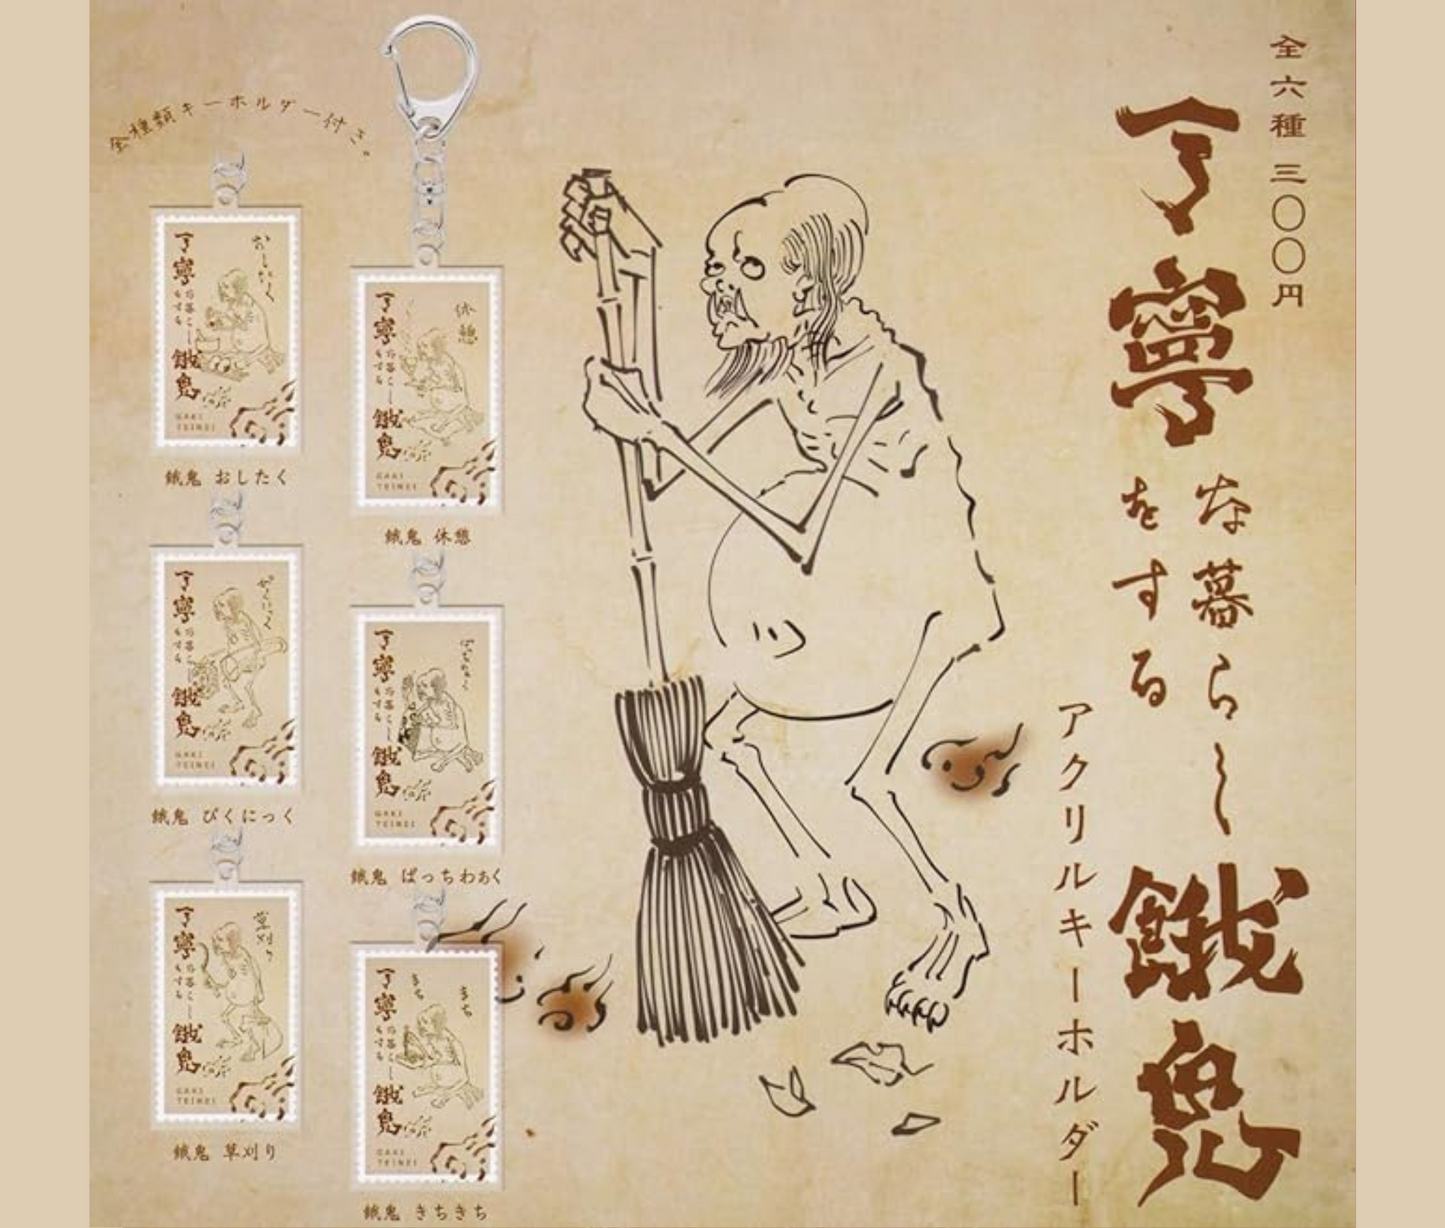 全六種 三〇〇円
丁寧
な暮らし
をする
餓鬼
アクリルキーホルダー
全種類キーホルダー付き。
おしたく
丁寧
な暮らし
をする
餓鬼
GAKI
TEINEI
餓鬼 おしたく
休憩
丁寧
な暮らし
をする
餓鬼
GAKI
TEINEI
餓鬼 休憩
ぴくにっく
丁寧
な暮らし
をする
餓鬼
GAKI
TEINEI
餓鬼 ぴくにっく
ぱっちわあく
丁寧
な暮らし
をする
餓鬼
GAKI
TEINEI
餓鬼 ぱっちわあく
草刈り
丁寧
な暮らし
をする
餓鬼
GAKI
TEINEI
餓鬼 草刈り
きち
きち
丁寧
な暮らし
をする
餓鬼
GAKI
TEINEI
餓鬼 きちきち